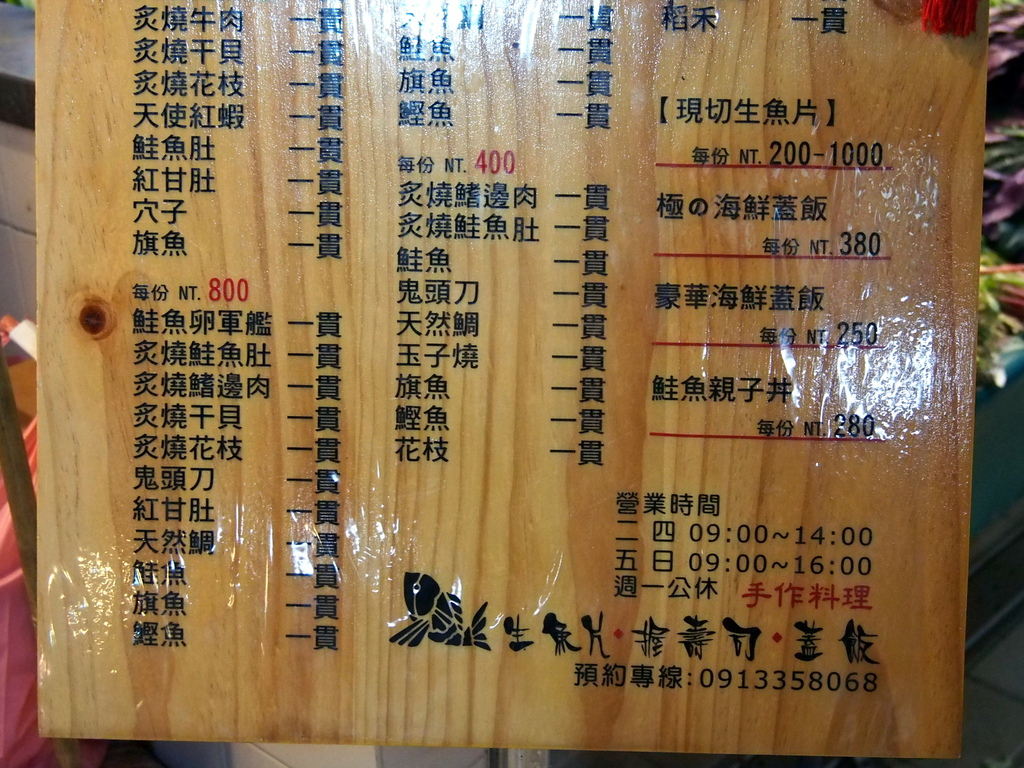 炙燒牛肉 一貫
炙燒干貝 一貫
炙燒花枝 一貫
天使紅蝦 一貫
鮭魚肚 一貫
紅甘肚 一貫
穴子 一貫
旗魚 一貫
每份 NT. 800
鮭魚卵軍艦 一貫
炙燒鮭魚肚 一貫
炙燒鰭邊肉 一貫
炙燒干貝 一貫
炙燒花枝 一貫
鬼頭刀 一貫
紅甘肚 一貫
天然鯛 一貫
鮭魚 一貫
旗魚 一貫
鰹魚 一貫
一貫
鮭魚 一貫
旗魚 一貫
鰹魚 一貫
每份 NT. 400
炙燒鰭邊肉 一貫
炙燒鮭魚肚 一貫
鮭魚 一貫
鬼頭刀 一貫
天然鯛 一貫
玉子燒 一貫
旗魚 一貫
鰹魚 一貫
花枝 一貫
稻禾 一貫
【現切生魚片】
每份 NT. 200-1000
極の海鮮蓋飯
每份 NT. 380
豪華海鮮蓋飯
每份 NT. 250
鮭魚親子丼
每份 NT. 280
營業時間
二 四 09:00~14:00
五 日 09:00~16:00
週一公休 手作料理
生魚片·握壽司·蓋飯
預約專線:0913358068